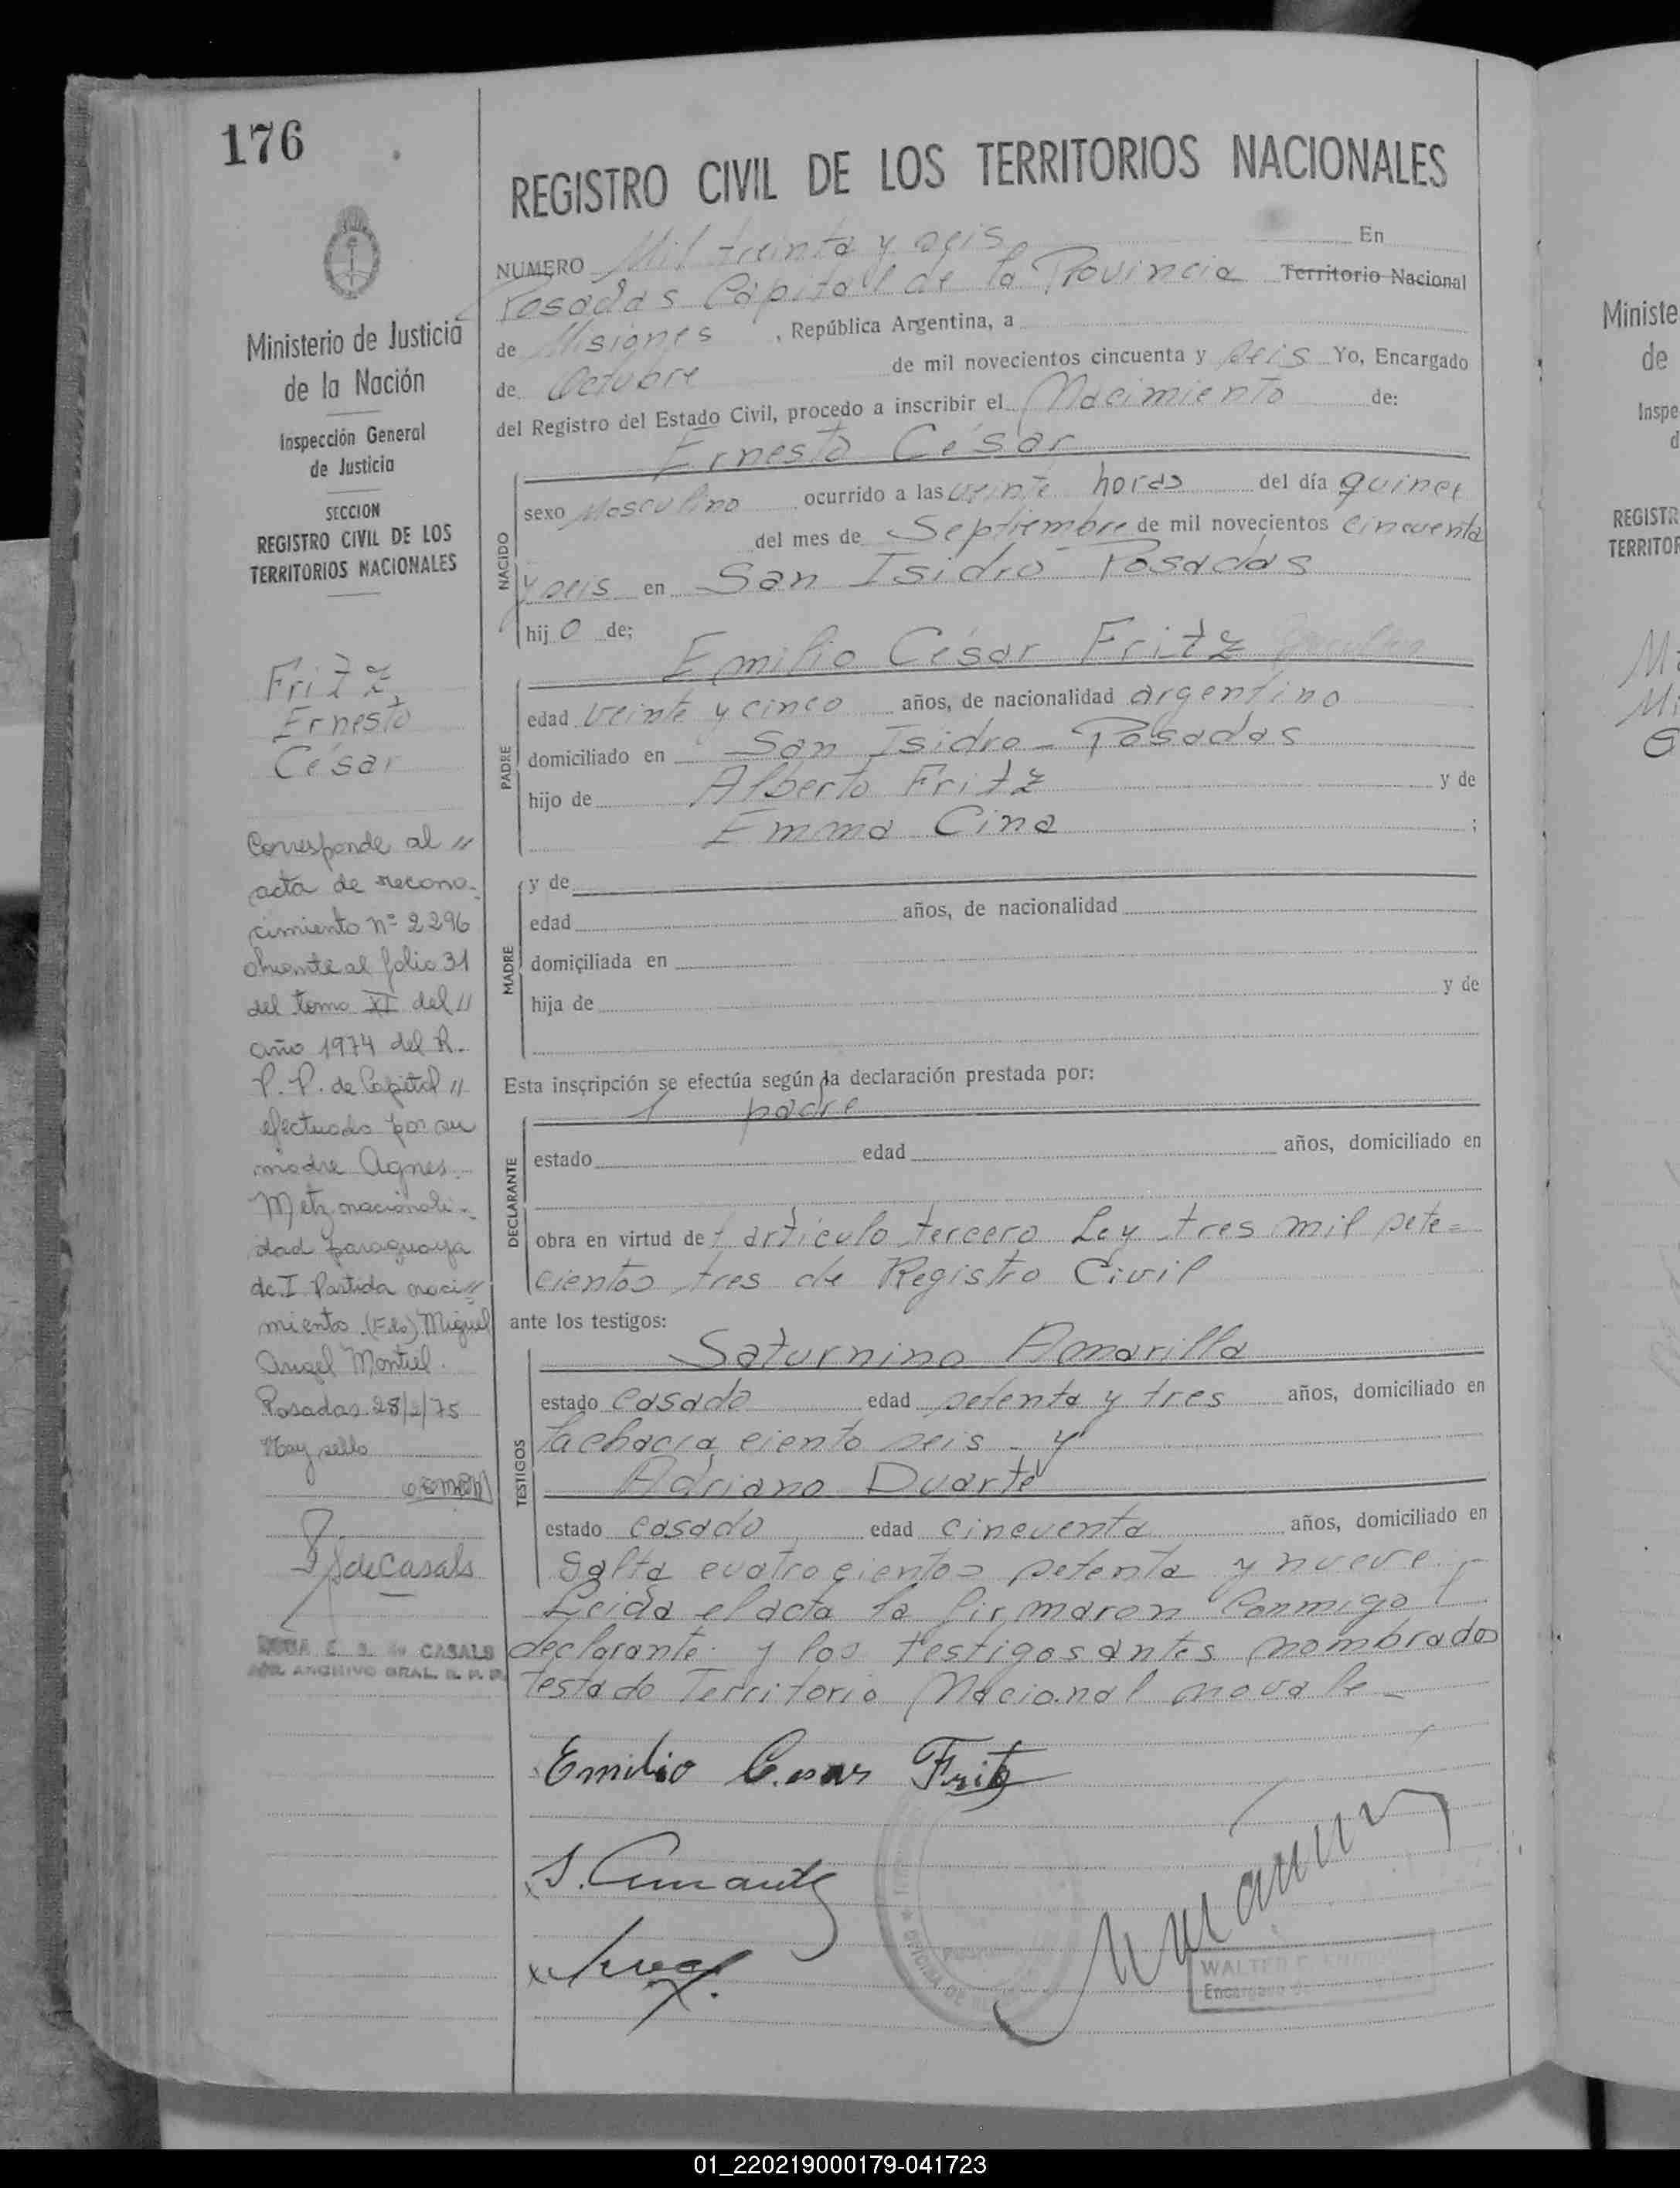 176
REGISTRO CIVIL DE LOS TERRITORIOS NACIONALES
Ministerio de Justicia
de la Nación
Inspección General
de Justicia
SECCION
REGISTRO CIVIL DE LOS
TERRITORIOS NACIONALES
Fritz,
Ernesto
César
Corresponde al //
acta de recono-
cimiento nº 2296
obrante al folio 31
del tomo XI del //
año 1974 del R.
P. P. de Capital //
efectuado por su
madre Agnes
Metz nacionali-
dad paraguaya
de I Partida naci//
miento. (Fdo) Miguel
Angel Montiel.
Posadas 28/2/75
Hay sello
de Casals
E. S. de CASALS
ARCHIVO GRAL. R. P. P.
NUMERO Mil treinta y seis En
Posadas Capital de la Provincia Territorio Nacional
de Misiones, República Argentina, a
de Octubre de mil novecientos cincuenta y seis Yo, Encargado
del Registro del Estado Civil, procedo a inscribir el Nacimiento de:
Ernesto César
NACIDO
sexo Masculino ocurrido a las veinte horas del día quince
del mes de Septiembre de mil novecientos cincuenta
y seis en San Isidro - Posadas
hijo de:
Emilio César Fritz
PADRE
edad veinte y cinco años, de nacionalidad argentino
domiciliado en San Isidro - Posadas
hijo de Alberto Fritz y de
Emma Cina ;
MADRE
y de
edad años, de nacionalidad
domiciliada en
hija de y de
Esta inscripción se efectúa según la declaración prestada por:
l padre
DECLARANTE
estado edad años, domiciliado en
obra en virtud del artículo tercero Ley tres mil sete=
cientos tres de Registro Civil
ante los testigos:
TESTIGOS
Saturnino Amarilla
estado casado edad setenta y tres años, domiciliado en
ciento seis - y
Adriano Duarte
estado casado edad cincuenta años, domiciliado en
Salta cuatrocientos setenta y nueve
Leida el acta la firmaron conmigo
declarante y los testigos antes nombrados
testado Territorio Nacional no vale -
Emilio Cesar Fritz
OFICINA DE
WALTER
Encargado
Ministe
de
Inspe
d
REGISTR
TERRITOR
01_220219000179-041723